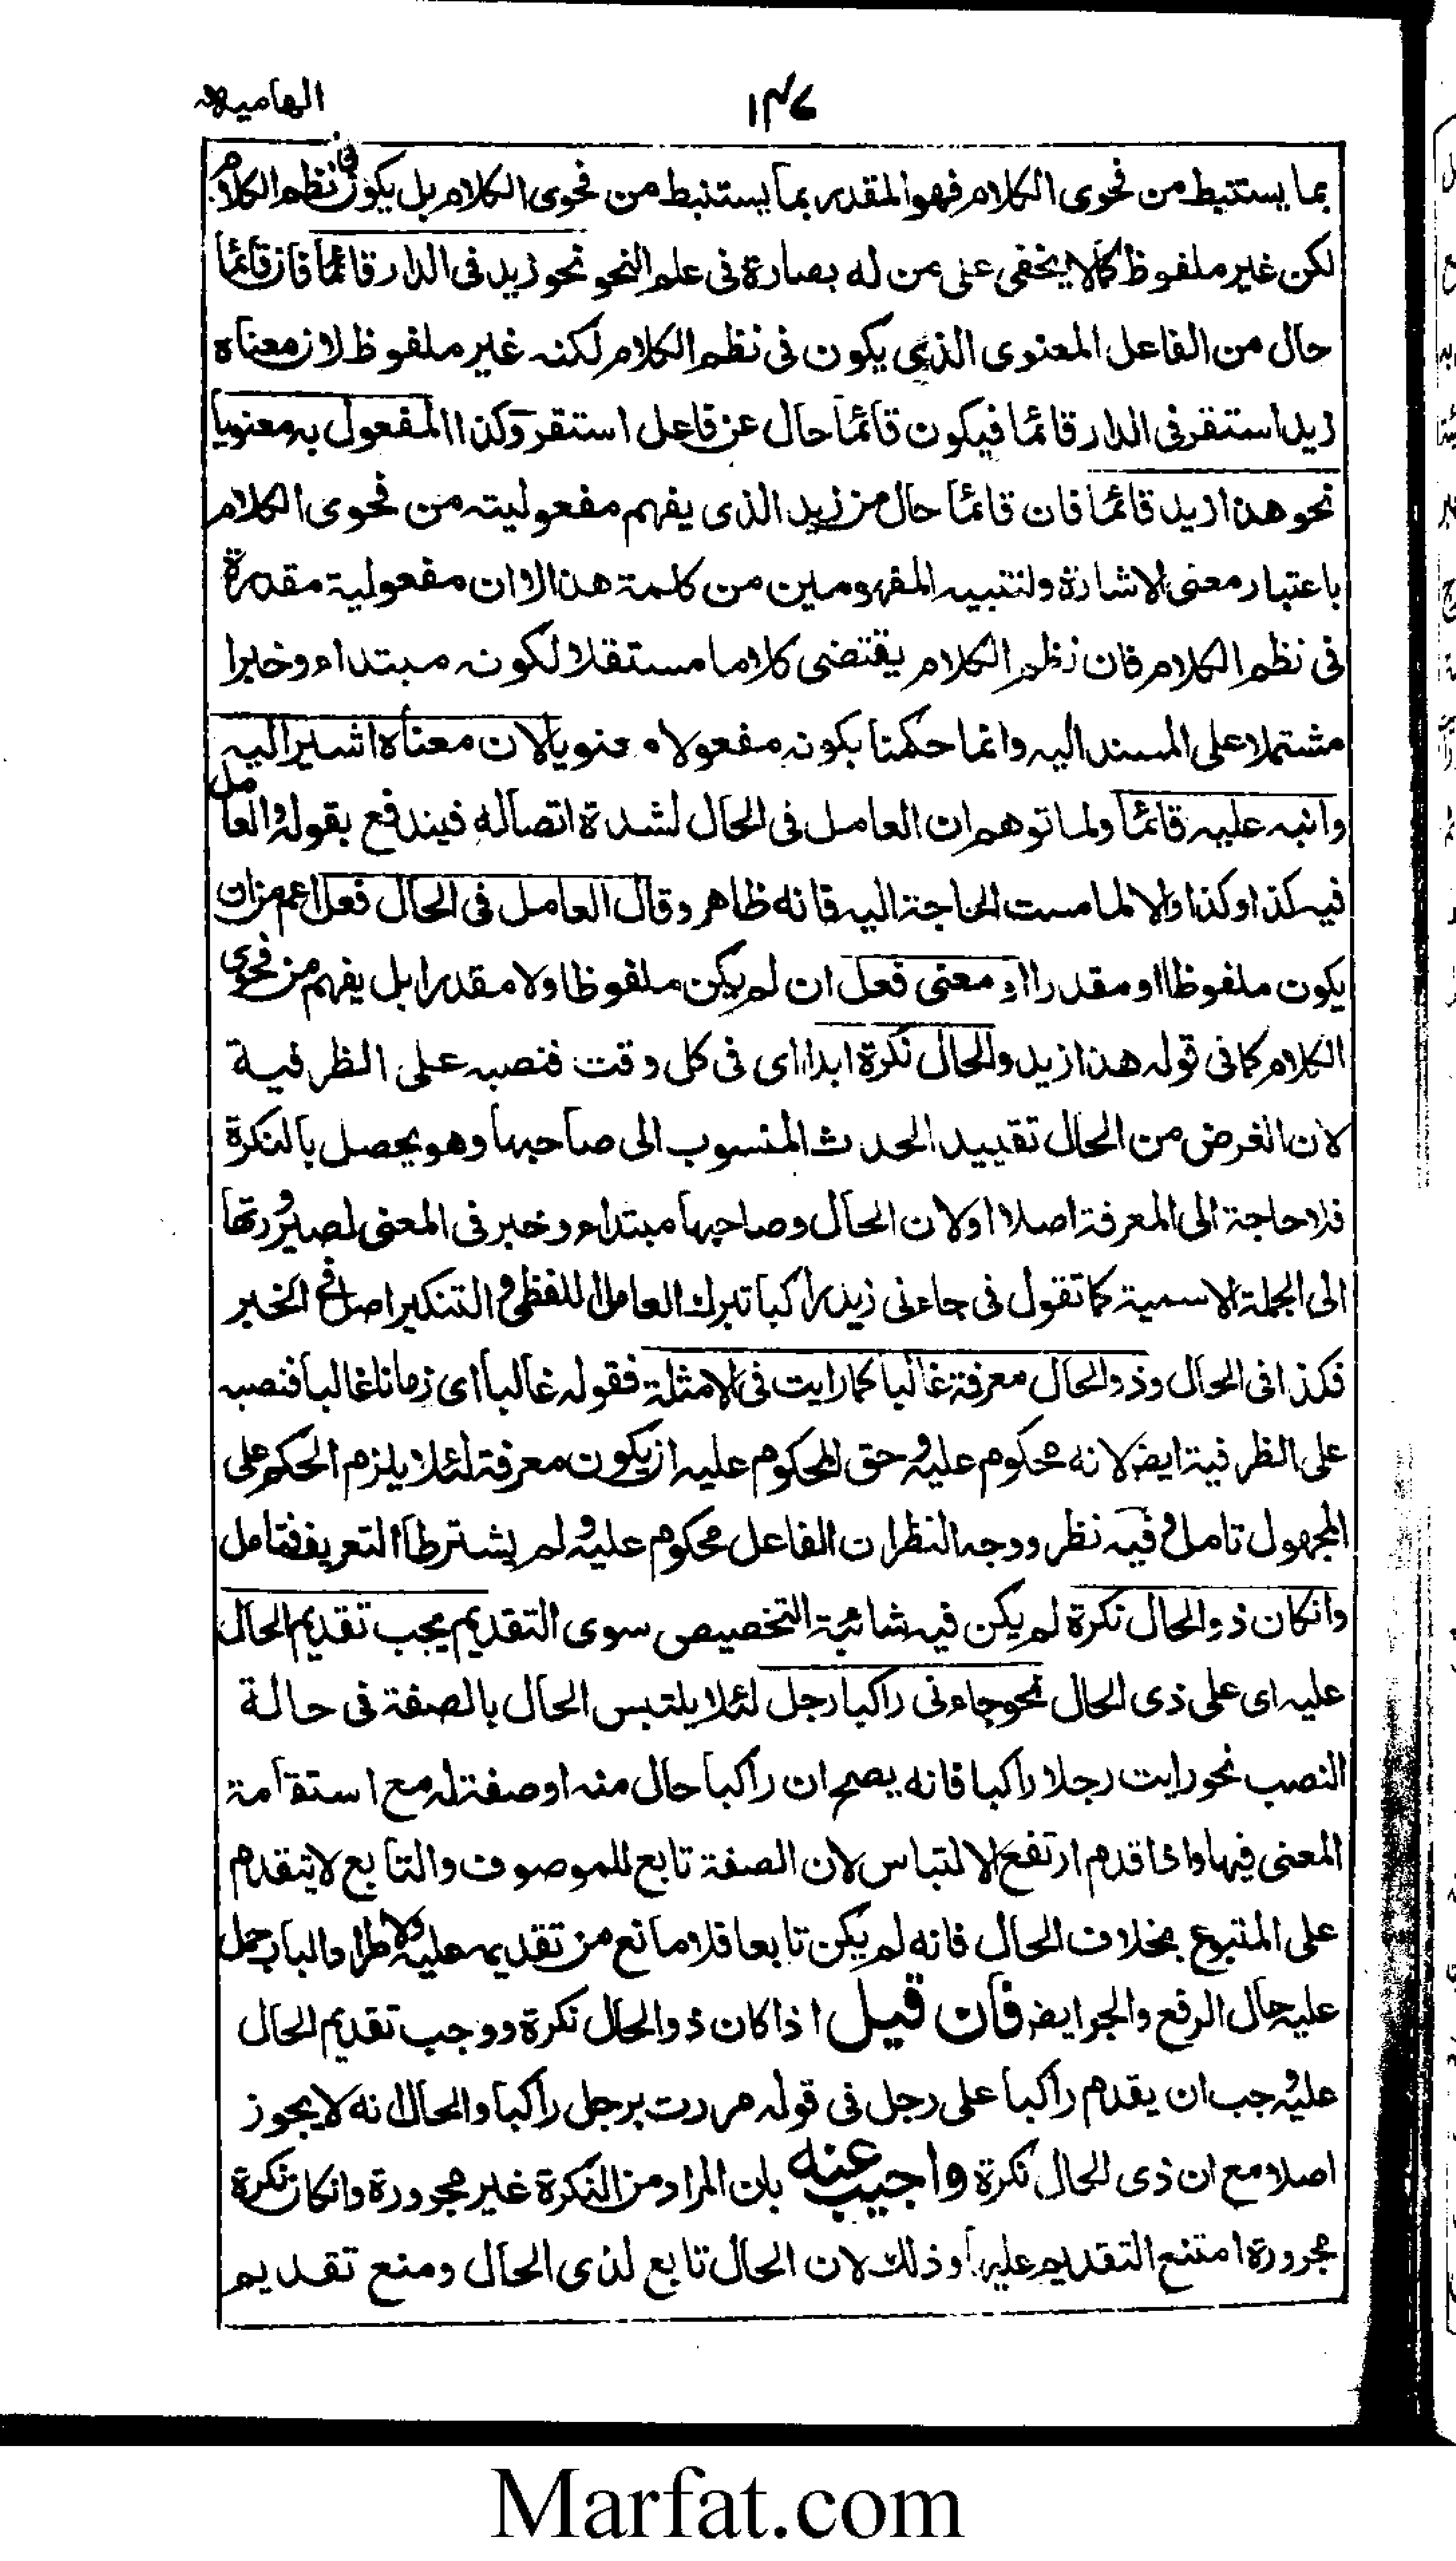 الهاميه
۱۴۷
بما يستنبط من فحوى الكلام فهو المقدر بما يستنبط من فحوى الكلام بل يكون فى نظم الكلام
لكن غير ملفوظ كما لا يخفى على من له بصارة فى علم النحو نحو زيد فى الدار قائما فان قائما
حال من الفاعل المعنوى الذى يكون فى نظم الكلام لكنه غير ملفوظ لان معناه
زيد استقر فى الدار قائما فيكون قائما حال عن فاعل استقر وكذا المفعول به معنويا
نحو هذا زيد قائما فان قائما حال من زيد الذى يفهم مفعوليته من فحوى الكلام
باعتبار معنى الاشارة ولتنبيه المفهومين من كلمة هذا لا ان مفعولية مقدرة
فى نظم الكلام فان نظم الكلام يقتضى كلاما مستقلا لكونه مبتداء وخبرا
مشتملا على المسند اليه وانما حكمنا بكونه مفعولا معنويا لان معناه اشير اليه
وانبه عليه قائما ولما توهم ان العامل فى الحال لشدة اتصاله فيندفع بقوله والعامل
فيه كذا وكذا والا لما مست الحاجة اليه فانه ظاهر وقال العامل فى الحال فعل اعم من ان
يكون ملفوظا او مقدرا او معنى فعل ان لم يكن ملفوظا ولا مقدرا بل يفهم من فحوى
الكلام كما فى قوله هذا زيد والحال نكرة ابدا اى فى كل وقت فنصبه على الظرفية
لان الغرض من الحال تقييد الحدث المنسوب الى صاحبها وهو يحصل بالنكرة
فلا حاجة الى المعرفة اصلا او لان الحال وصاحبها مبتداء وخبر فى المعنى لصيرورتها
الى الجملة الاسمية كما تقول فى جاءنى زيد راكبا تبرك العامل اللفظى والتنكير اصل فى الخبر
فكذا فى الحال وذو الحال معرفة غالبا كما رايت فى الامثلة فقوله غالبا اى زمانا غالبا فنصبه
على الظرفية ايضا لانه محكوم عليه وحق المحكوم عليه ان يكون معرفة لئلا يلزم الحكم على
المجهول تامل وفيه نظر ووجه النظر ان الفاعل محكوم عليه ولم يشترط التعريف فتامل
وانكان ذو الحال نكرة لم يكن فيه شائبة التخصيص سوى التقديم يجب تقديم الحال
عليه اى على ذى الحال نحو جاءنى راكبا رجل لئلا يلتبس الحال بالصفة فى حالة
النصب نحو رايت رجلا راكبا فانه يصح ان راكبا حال منه او صفة له مع استقامة
المعنى فيها واذا قدم ارتفع الالتباس لان الصفة تابع للموصوف والتابع لا يتقدم
على المتبوع بخلاف الحال فانه لم يكن تابعا فلا مانع من تقديمه عليه ولاطراد الباب حمل
عليه حال الرفع والجر ايضا فان قيل اذا كان ذو الحال نكرة ووجب تقديم الحال
عليه وجب ان يقدم راكبا على رجل فى قوله مررت برجل راكبا والحال انه لا يجوز
اصلا مع ان ذى الحال نكرة واجيب عنه بان المراد من النكرة غير مجرورة وانكان نكرة
مجرورة امتنع التقديم عليه وذلك لان الحال تابع لذى الحال ومنع تقديم
Marfat.com